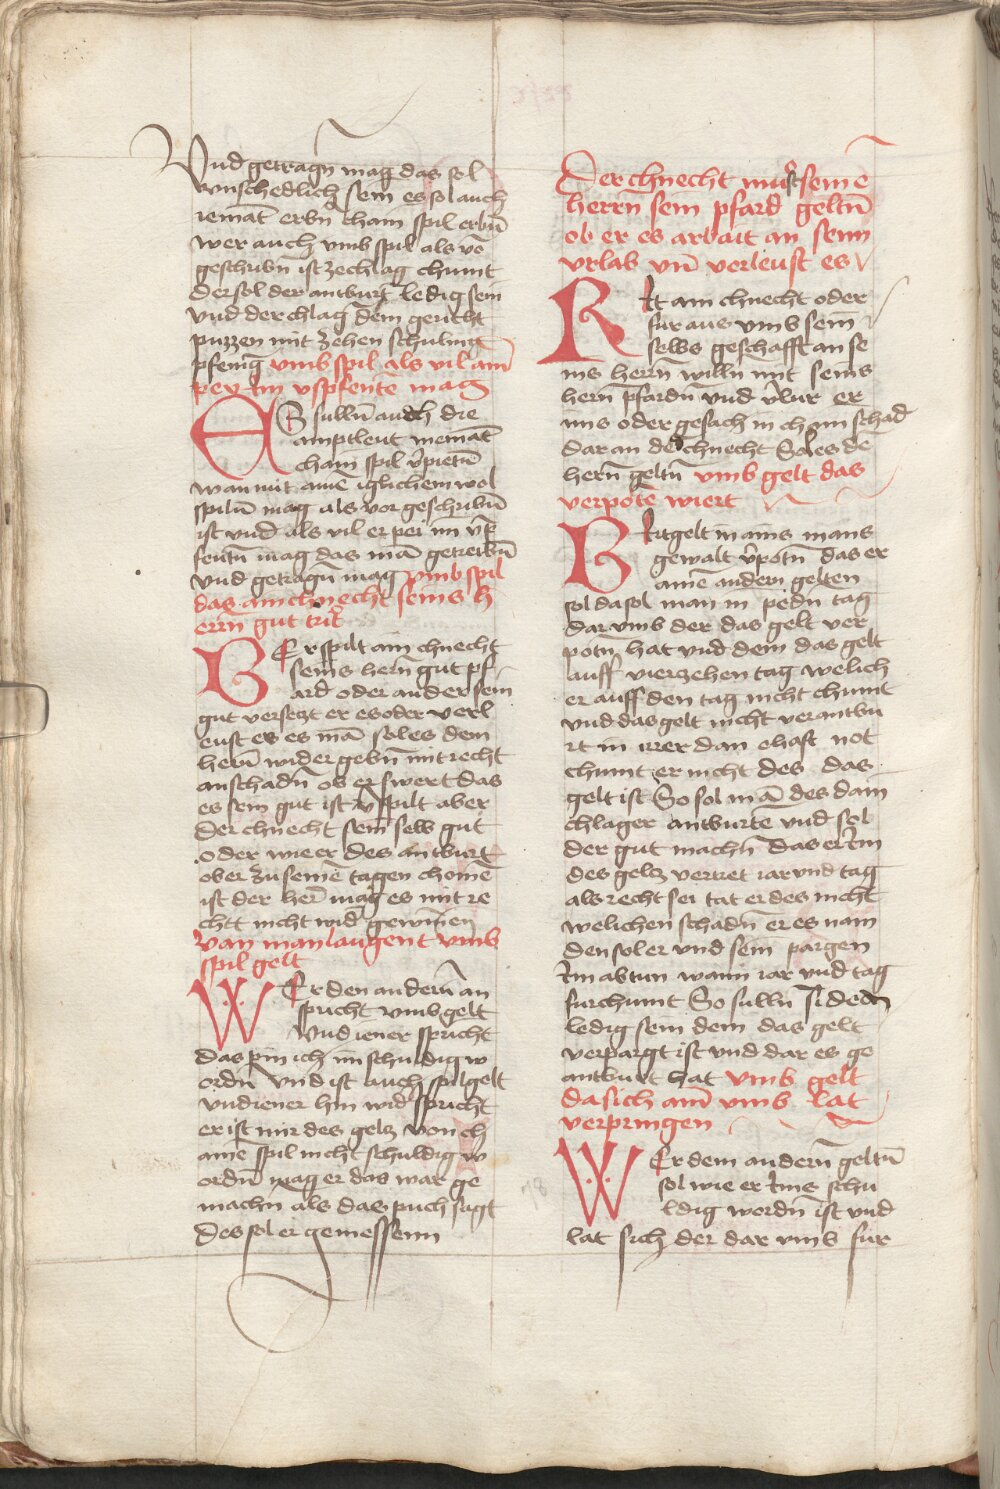 Vnd getragn̄ mag das sol
vnschedlich sein es sol auch
iemat̄ erbn̄ cham spil erbn̄
wer auch vmb spil als vo
geschribn̄ ist zechlag chumt
der sol der antburt ledig sein
vnd der chlag dem gericht
puzzen mit zehen schuling
pfenīg vmb spil als vil ain̄
pey im v̄spfente mag
ES sulln̄ auch die
amptleut niemāt
chain spil v̄pietn̄
wan mit ainē iglichem wol
spiln̄ mag als vor geschribn̄
ist vnd als vil er pei im v̄p
fentn̄ mag das mā getreibn̄
vnd getragn̄ mag vmb spil
das ain chnecht seins h
errn gut tut
Er spilt ain chnecht
seins hern̄ gut pf
ard oder ander sein
gut versetzt er es oder verl
eust er es mā sol es dem
hern̄ wider gebn̄ mit recht
an schadn̄ ob er swert das
es sein gut ist v̄spilt aber
der chnecht sein selb gut
oder wie er des antburt
ober zu seinē tagen chomē
ist der her mag es mit re
chtt nicht wid̾ gewinen
Van man laugent vmb
spil gelt
WEr den andern̄ an
spricht vmb gelt
vnd iener spricht
das pin ich im schuldig w
ordn̄ vnd ist auch spilgelt
vnd iener hin wid̾ spricht
er ist mir des geltz von ch
ainē spil nicht schuldig w
ordn̄ mag er das war ge
machn als das puch sagt
des sol er geniessenn
Der chnecht mus seinē
herrn sein pfard geltn̄
ob er es arbait an seinn
vrlab vn̄ verleust es
Rit ain chnecht oder
für aus vmb sein
selbs geschafft an se
ins herrn̄ willn̄ mit seins
hern̄ pfardn̄ vnd v̄lür er
ims oder gesach in chain schad
dar an der chnecht Sol es de
hern̄ geltn̄ vmb gelt das
verpotē wiert
Irt gelt in ains mans
gewalt v̄potn̄ das er
ainē andern gelten
sol da sol man in pedn̄ tag
dar vmb der das gelt ver
potn̄ hat vnd dem das gelt
auff vierzehen tag welich
er auff den tag nicht chumt
vnd das gelt nicht verantbu
rt in irrer dan ehaft not
chumt er nicht des das
gelt ist So sol mā des dain
chlager antburtē vnd sol
der gut machn̄ das er im
des geltz vertret iar vnd tag
als recht sei tat er des nicht
welichen schadn̄ er es nam
den sol er vnd sein pargen
im abtun wann iar vnd tag
furchumt So sulln̄ si dedn
ledig sein dem das gelt
verpargt ist vnd dar es ge
antburt hat vmb gelt
da sich ain̄ vmb lat
verpringen
WEr dem andern̄ geltn̄
sol wie er ims schu
ldig wordn̄ ist vnd
lat sich der dar vmb für